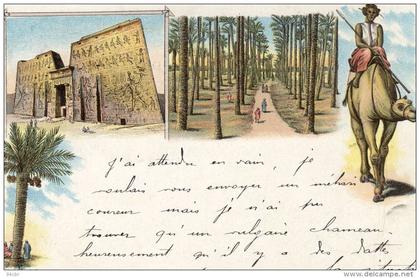 J'ai attendu en vain, je
voulais vous envoyer un méhari
coureur mais je n'ai pu
trouver qu'un vulgaire chameau.
heureusement qu'il y a des dattes
delcampe.net